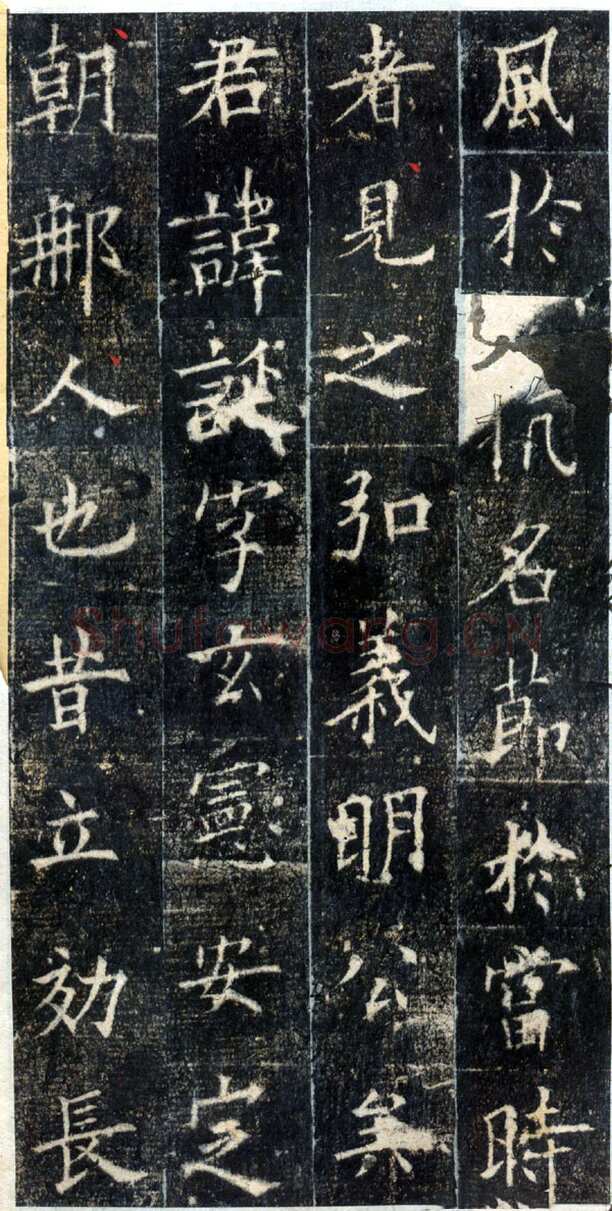 風於抗名節於當時
者見之弘義明公矣
君諱誕字玄憲安定
朝那人也昔立効長
Shufawang.CN